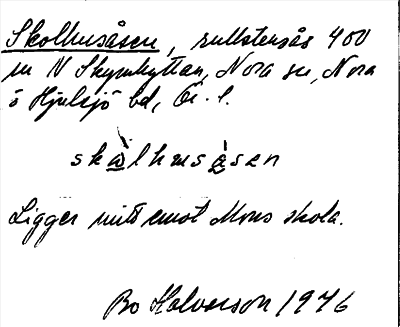 Skolhusåsen, rullstensås 400
m N Skymhyttan, Nora sn, Nora
o Hjulsjö bd, Ör. l.
skålhusåsen
Ligger mitt emot Mons skola.
Bo Halvarson 1976